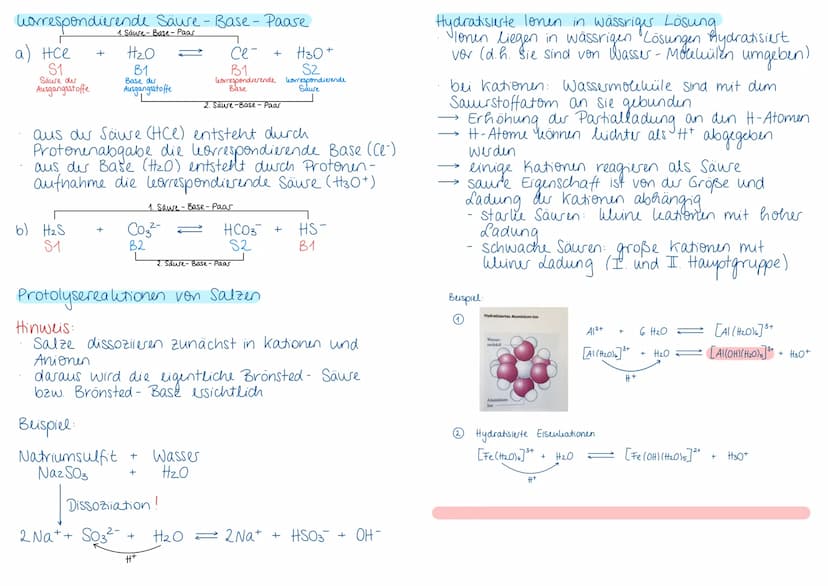 Korrespondierende Säure-Base-Paare
1. Säure-Base-Paar
a) HCl + H2O ⇌ Cl⁻ + H3O⁺
S1 B1 B1 S2
Säure der Ausgangsstoffe Base der Ausgangsstoffe korrespondierende Base korrespondierende Säure
2. Säure-Base-Paar
· aus der Säure (HCl) entsteht durch
Protonenabgabe die korrespondierende Base (Cl⁻)
· aus der Base (H2O) entsteht durch Protonen-
aufnahme die korrespondierende Säure (H3O⁺)
1. Säure-Base-Paar
b) H2S + CO3²⁻ ⇌ HCO3⁻ + HS⁻
S1 B2 S2 B1
2. Säure-Base-Paar
Protolysereaktionen von Salzen
Hinweis:
· Salze dissoziieren zunächst in Kationen und
Anionen
· daraus wird die eigentliche Brönsted-Säure
bzw. Brönsted-Base ersichtlich
Beispiel:
Natriumsulfit + Wasser
Na2SO3 + H2O
Dissoziation!
2Na⁺ + SO3²⁻ + H2O ⇌ 2Na⁺ + HSO3⁻ + OH⁻
H⁺
Hydratisierte Ionen in wässriger Lösung
· Ionen liegen in wässrigen Lösungen hydratisiert
vor (d.h. sie sind von Wasser-Molekülen umgeben)
· bei Kationen: Wassermoleküle sind mit dem
Sauerstoffatom an sie gebunden
→ Erhöhung der Partialladung an den H-Atomen
→ H-Atome können leichter als H⁺ abgegeben
werden
→ einige Kationen reagieren als Säure
→ saure Eigenschaft ist von der Größe und
Ladung der Kationen abhängig
- starke Säuren: kleine Kationen mit hoher
Ladung
- schwache Säuren: große Kationen mit
kleiner Ladung (I. und II. Hauptgruppe)
Beispiel:
① Hydratisiertes Aluminium-Ion
Wasser-
molekül
Aluminium-
Ion
Al³⁺ + 6 H2O ⇌ [Al(H2O)6]³⁺
[Al(H2O)6]³⁺ + H2O ⇌ [Al(OH)(H2O)5]²⁺ + H3O⁺
H⁺
② Hydratisierte Eisenkationen
[Fe(H2O)6]³⁺ + H2O ⇌ [Fe(OH)(H2O)5]²⁺ + H3O⁺
H⁺